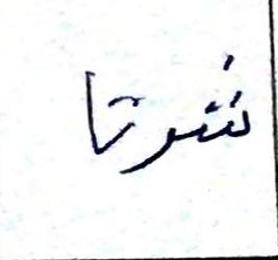 نشرتا